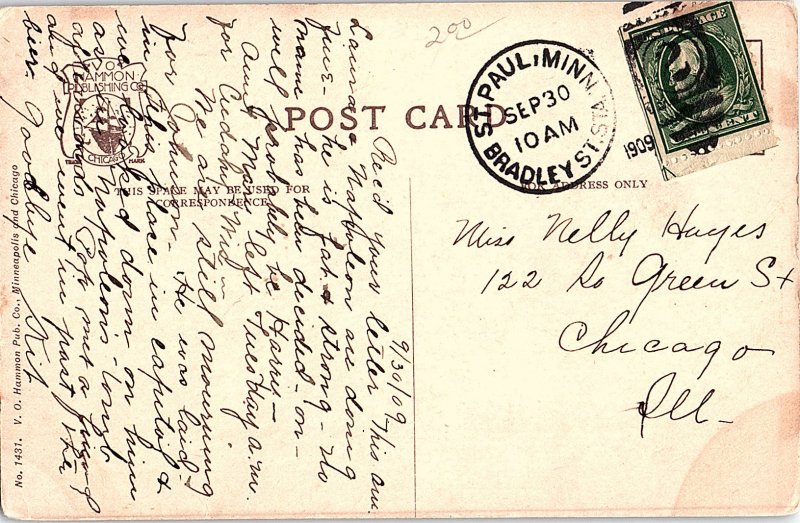 200
POST CARD
ST. PAUL, MINN.
BRADLEY ST. STA.
SEP 30
10 AM
1909
V.O. HAMMON PUBLISHING CO.
CHICAGO
TRADE MARK
THIS SPACE MAY BE USED FOR
CORRESPONDENCE
FOR ADDRESS ONLY
No. 1431. V. O. Hammon Pub. Co., Minneapolis and Chicago
Miss Nelly Hayes
122 So Green St
Chicago
Ill-
9/30/09
Rec'd your letter this am.
Laura & Napoleon are doing
fine- he is fat & strong- No
name has been decided- on-
will probably be Harry-
Aunt May left Tuesday a.m.
for Cudahy Wis-
We are still mourning
for Johnson- He was laid
in this place in capitol &
we looked down on him
as on Napoleon's tomb
afterwards. Pop met a
and he went in past the
bier. Goodbye Kit